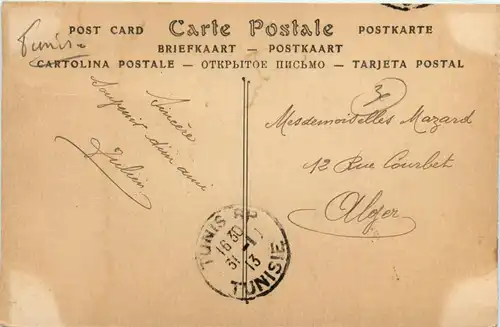 POST CARD Carte Postale POSTKARTE
BRIEFKAART — POSTKAART
CARTOLINA POSTALE — ОТКРЫТОЕ ПИСЬМО — TARJETA POSTAL
Tunis
Sincère
Souvenir d'un ami
Julien
3
Mesdemoiselles Mazard
12 Rue Courbet
Alger
TUNIS RP
16 30
31 -1
13
TUNISIE